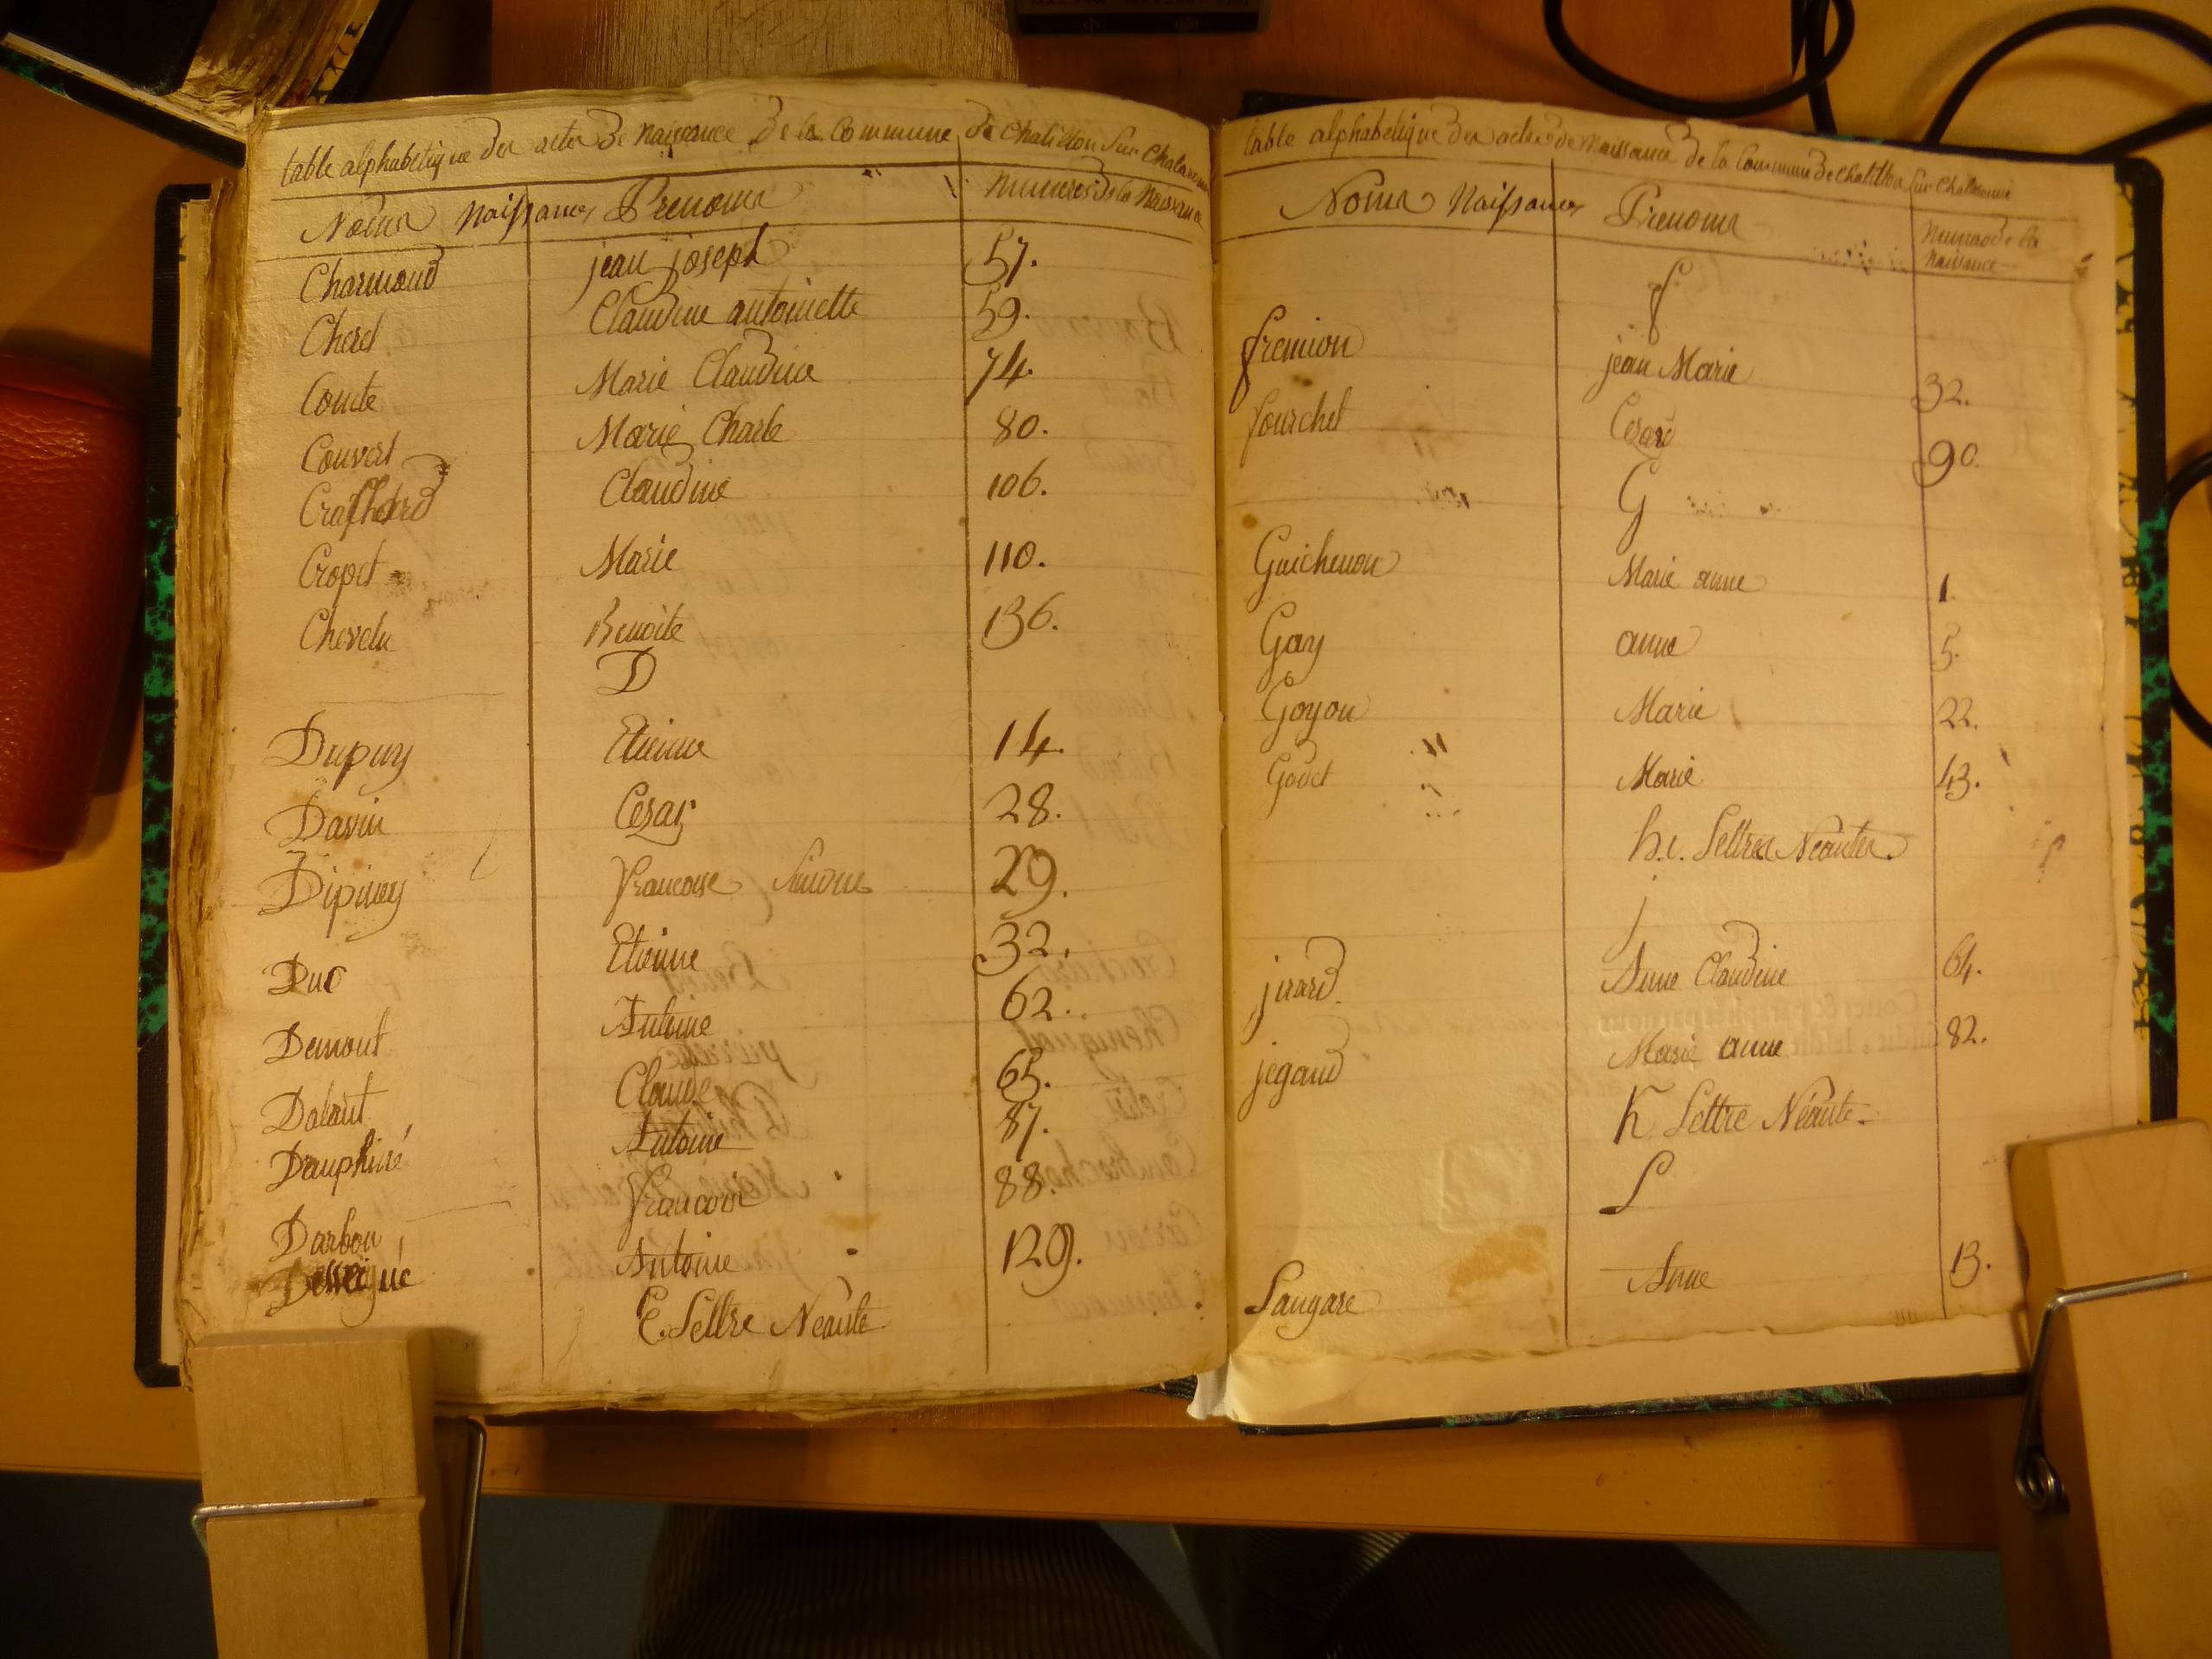 table alphabetique des actes de naissance de la Commune de Chatillon sur Chalaronne
Noms Naissances Prenoms Numeros de la Naissance
Charmond jean joseph 57.
Cheret Claudine antoinette 59.
Comte Marie Claudine 74.
Couvert Marie Charle 80.
Claudine 106.
Cropet Marie 110.
Chevelu Benoite 136.
D
Dupuy Etienne 14.
Davin Cezar 28.
Dipiney Francoise Simone 29.
Duc Etienne 32.
Demont Antoine 62.
Dalant Claude 65.
Dauphiné Antoine 87.
Darbon Francois 88.
Antoine 129.
E. Lettre Néante
table alphabetique des actes de Naissance de la Commune de Chatillon sur Chalaronne
Noms Naissances Prenoms Numero de la Naissance
f
fremion jean Marie 32.
fourchet Cezard 90.
G
Guichenon Marie anne 1.
Gay anne 5.
Goyon Marie 22.
Godet Marie 43.
h.i. Lettres Néantes.
j
jirard. Anne Claudine 64.
jegaud Marie anne 82.
K Lettre Néante.
L
Langare Anne 13.